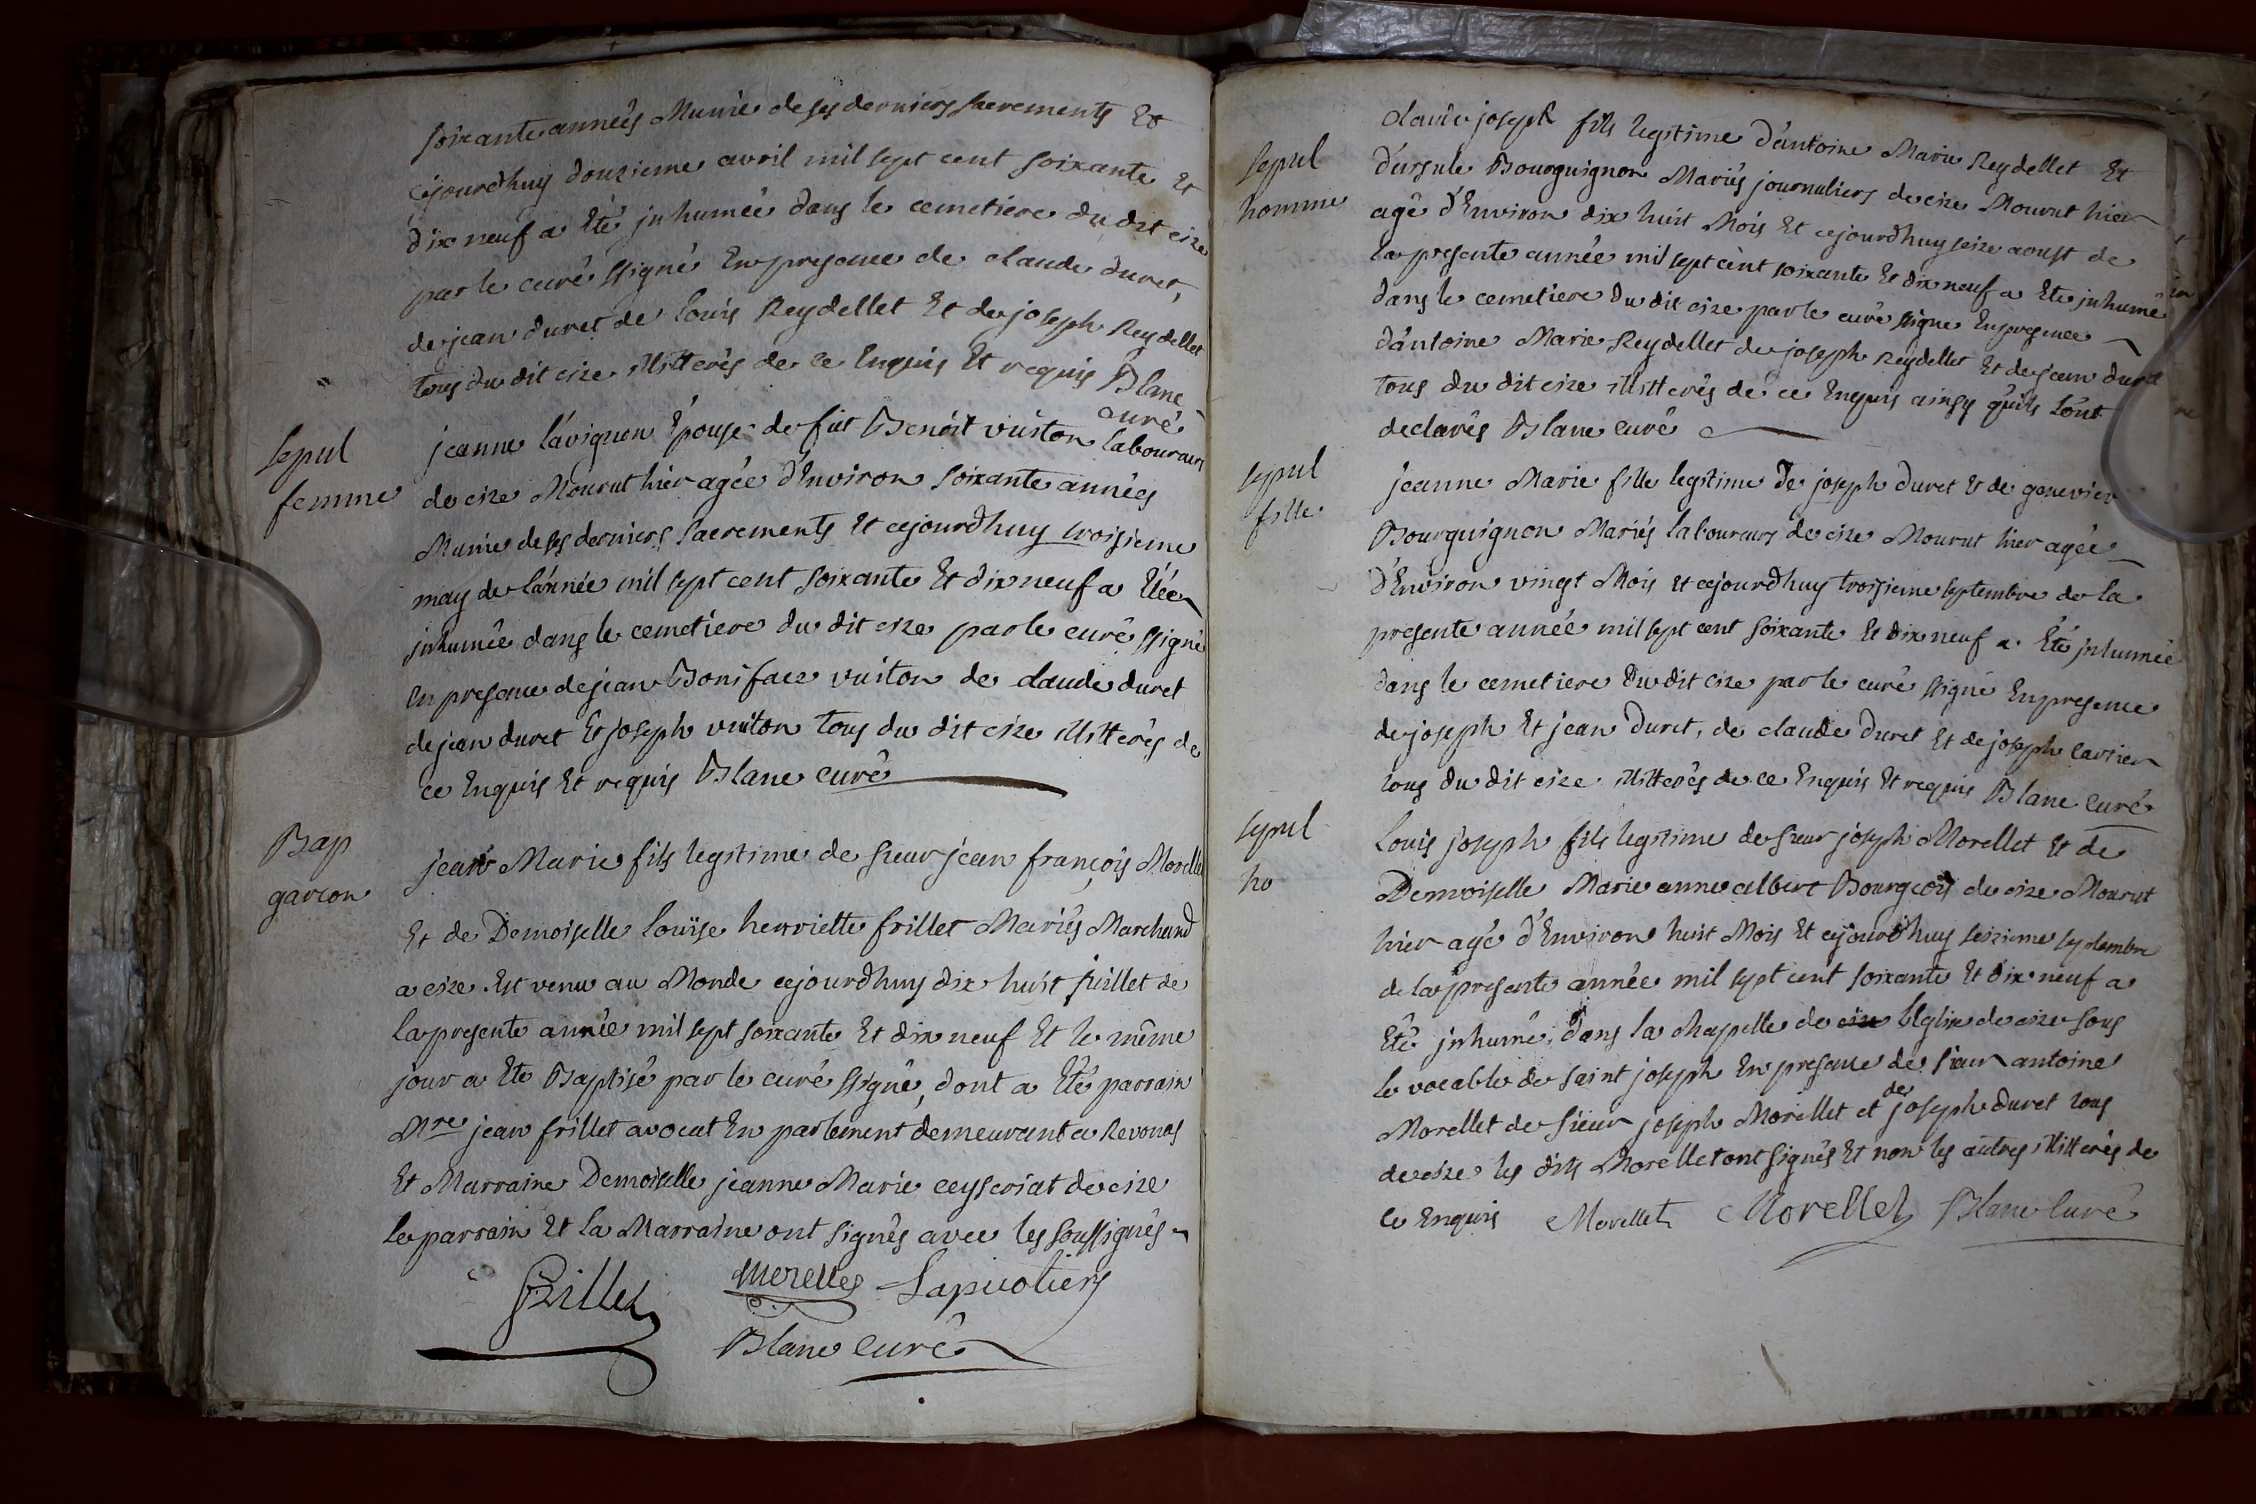 soixante années Munie de ses derniers sacrements Et
cejourdhuy douzieme avril mil sept cent soixante Et
dix neuf a Eté inhumée dans le cemetiere du dit cize
par le curé ssigné En presence de claude duret,
de jean duret de Louis Reydellet Et de joseph Reydellet
tous du dit cize illitterés de ce Enquis Et requis Blanc
curé
sepul
femme
jeanne lavignon Epouse de fut Benoit vuiton laboureur
de cize Mourut hier agée d'Environ soixante années
Munie de ses derniers sacrements Et cejourdhuy troisieme
may de l'année mil sept cent soixante Et dix neuf a Eté
inhumée dans le cemetiere du dit cize par le curé ssigné
En presence de jean Boniface vuiton de claude duret
de jean duret Et joseph vuiton tous du dit cize illitterés de
ce Enquis Et requis Blanc curé
Bap
garcon
jean Marie fils legitime de sieur jean françois Morellet
Et de Demoiselle Louïse henriette frillet Mariés Marchand
a cize Est venu au Monde cejourdhuy dix huit juillet de
la presente année mil sept soixante Et dix neuf Et le même
jour a Eté Baptisé par le curé ssigné, dont a Eté parrain
Mre jean frillet avocat En parlement demeurant a Revonas
Et Marraine Demoiselle jeanne Marie ceyseriat de cize
le parrain Et la Marraine ont signés avec les soussignés
Frillet Morellet
Blanc curé
sepul
homme
claude joseph fils legitime d'antoine Marie Reydellet Et
d'ursule Bourguignon Mariés journaliers de cize Mourut hier
agé d'Environ dix huit Mois Et cejourdhuy seize aoust de
la presente année mil sept cent soixante Et dix neuf a Eté inhumé
dans le cemetiere du dit cize par le curé ssigné En presence
d'antoine Marie Reydellet de joseph Reydellet Et de jean duret
tous du dit cize illitterés de ce Enquis ainsy qu'ils l'ont
declarés Blanc curé
sepul
fille
jeanne Marie fille legitime de joseph duret Et de genevieve
Bourguignon Mariés laboureurs de cize Mourut hier agée
d'Environ vingt Mois Et cejourdhuy troisieme septembre de la
presente année mil sept cent soixante Et dix neuf a Eté inhumée
dans le cemetiere du dit cize par le curé ssigné En presence
de joseph Et jean duret, de claude duret Et de joseph cartier
tous du dit cize illitterés de ce Enquis Et requis Blanc curé
sepul
ho
Louis joseph fils legitime de sieur joseph Morellet Et de
Demoiselle Marie anne albert Bourgeois de cize Mourut
hier agé d'Environ huit Mois Et cejourdhuy seizieme septembre
de la presente année mil sept cent soixante Et dix neuf a
Eté inhumé, dans la chapelle de cize l'Eglise de cize sous
le vocable de saint joseph En presence de sieur antoine
Morellet de sieur joseph Morellet et de joseph duret tous
de cize les dits Morellet ont signés Et non les autres illitterés de
ce Enquis Morellet Morellet Blanc curé